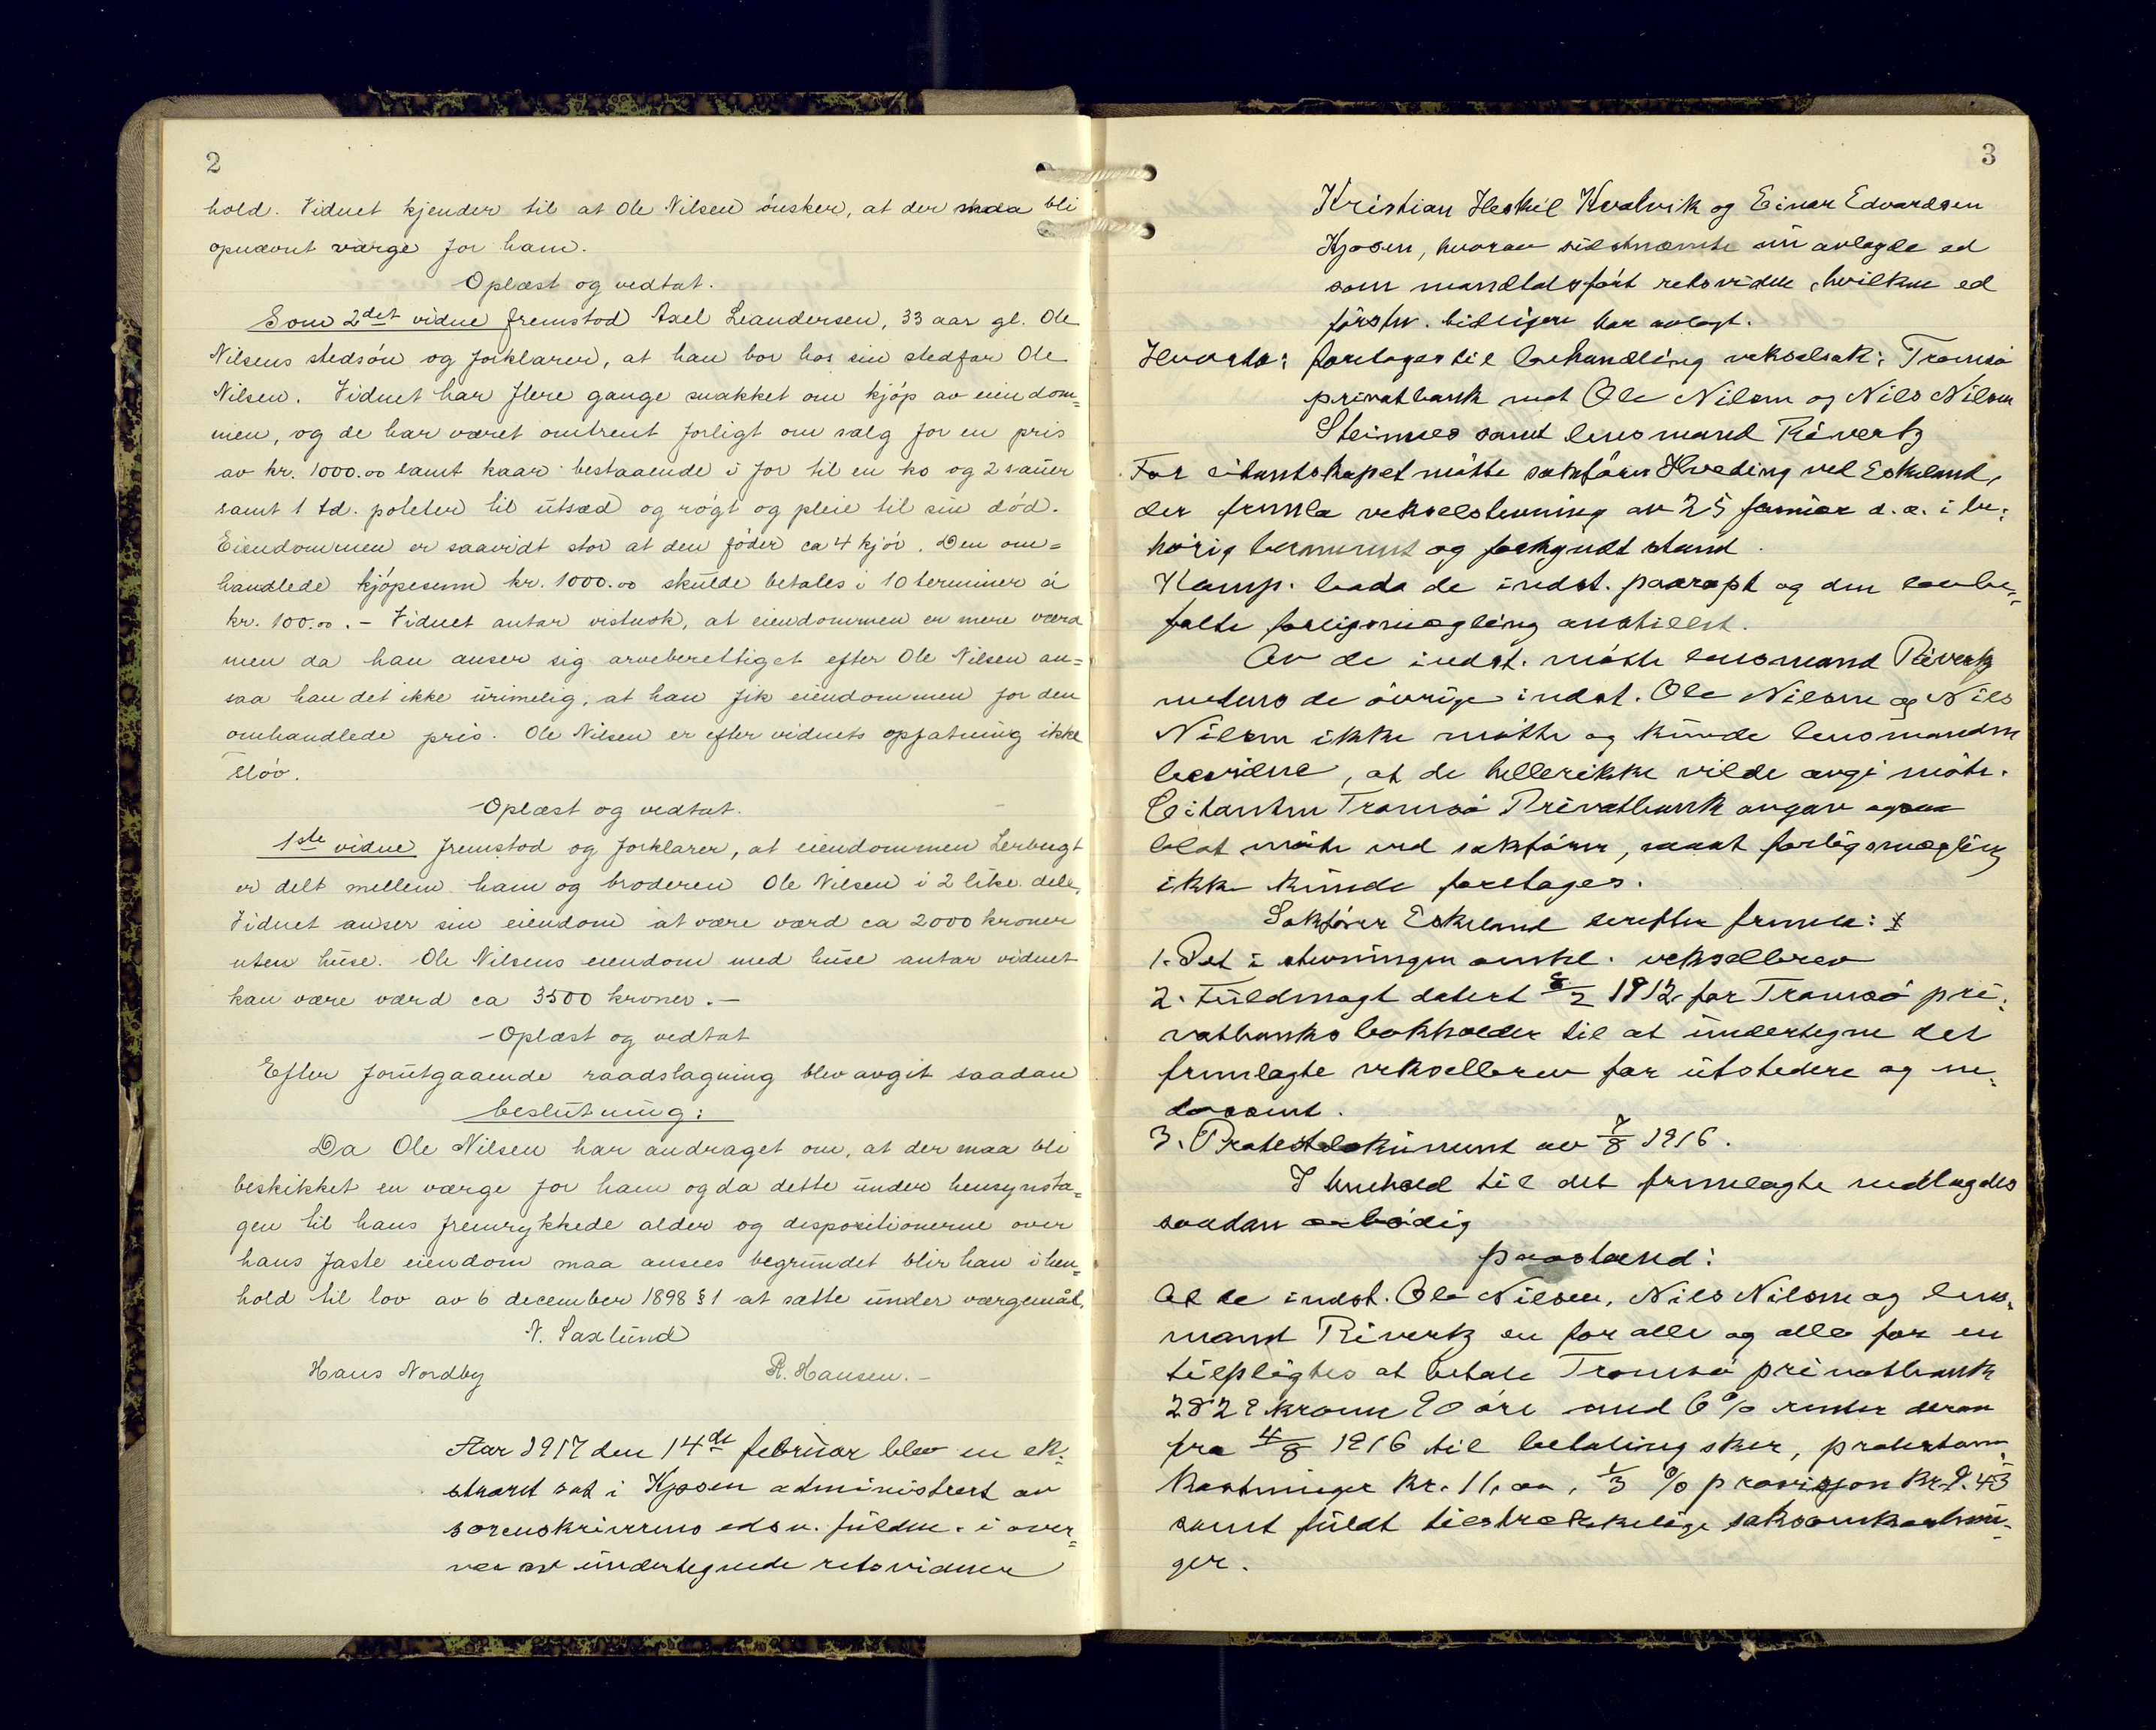 2
hold. Vidnet kjender til at Ole Nilsen ønsker, at der maa bli
opnævnt værge for ham.
Oplæst og vedtat.
Som 2det vidne fremstod Axel Leandersen, 33 aar gl. Ole
Nilsens stedsøn og forklarer, at han bor hos sin stedfar Ole
Nilsen. Vidnet har flere gange snakket om kjøp av eiendom=
men, og de har været omtrent forligt om salg for en pris
av kr. 1000.00 samt kaar bestaaende i for til en ko og 2 sauer
samt 1 td. poteter til utsæd og røgt og pleie til sin død.
Eiendommen er saavidt stor at den føder ca 4 kjør. Den om=
handlede kjøpesum kr. 1000.00 skulde betales i 10 terminer á
kr. 100.00. - Vidnet antar vistnok, at eiendommen er mere værd
men da han anser sig arveberettiget efter Ole Nilsen an=
saa han det ikke urimelig, at han fik eiendommen for den
omhandlede pris. Ole Nilsen er efter vidnets opfatning ikke
sløv.
Oplæst og vedtat.
1ste vidne fremstod og forklarer, at eiendommen Lerbugt
er delt mellem ham og broderen Ole Nilsen i 2 like dele,
Vidnet anser sin eiendom at være værd ca 2000 kroner
uten huse. Ole Nilsens eiendom med huse antar vidnet
kan være værd ca 3500 kroner. -
Oplæst og vedtat
Efter forutgaaende raadslagning blev avgit saadan
beslutning:
Da Ole Nilsen har andraget om, at der maa bli
beskikket en værge for ham og da dette under hensynsta=
gen til hans fremrykkede alder og dispositionerne over
hans faste eiendom maa ansees begrundet blir han i hen=
hold til lov av 6 december 1898 § 1 at sætte under værgemål.
N. Saxlund
Hans Nordby R. Hansen. -
Aar 1917 den 14de februar blev en ek=
straret sat i Kjosen administrert av
sorenskriverens edsv. fuldm. i over=
vær av undertegnede retsvidner
3
Kristian Heskil Kvalvik og Einar Edvardsen
Kjosen, hvorav sidstnævnte nu avlagde ed
som mandtalsført retsvidne, hvilken ed
førstn. tidligere har avlagt.
Hvorda: foretages til behandling vekselsak: Tromsø
privatbank mot Ole Nilsen og Nils Nilsen
Steinnes samt lensmand Rivertz
For citantskapet møtte sakfører Hveding ved Eskeland,
der fremla vekselstevning av 25 januar d. a. i be=
hørig beramment og forkyndt stand.
Kamp. bada de indst. paaropt og den lovbe=
falte forligsmægling anstillet.
Av de indst. møtte lensmand Rivertz
metens de øvrige indst. Ole Nilsen og Nils
Nilsen ikke møtte og kunde lensmanden
bevidne, at de heller ikke vilde avgi møte.
Citanten Tromsø Privatbank avgav
blot møte ved sakfører, saaat forligsmægling
ikke kunde foretages.
Sakfører Eskeland derefter fremla:
1. Det i stevningen omhl. vekselbrev
2. Fuldmagt datert 8/2 1912 for Tromsø pri=
vatbanks bokholder til at undertegne det
fremlagte vekselbrev for utstedere og en=
dossent.
3. Protestdokument av 7/8 1916.
I henhold til det fremlagte nedlagdes
saadan ærbødig
paastand:
At de indst. Ole Nilsen, Nils Nilsen og lens=
mand Rivertz en for alle og alle for en
tilpligtes at betale Tromsø privatbank
2829 kroner 90 øre med 6% renter derav
fra 4/8 1916 til betaling sker, protestom=
kostninger kr. 11,00, 1/3 % provisjon kr. 9.43
samt fuldt tilstrækkelige saksomkostnin=
ger.